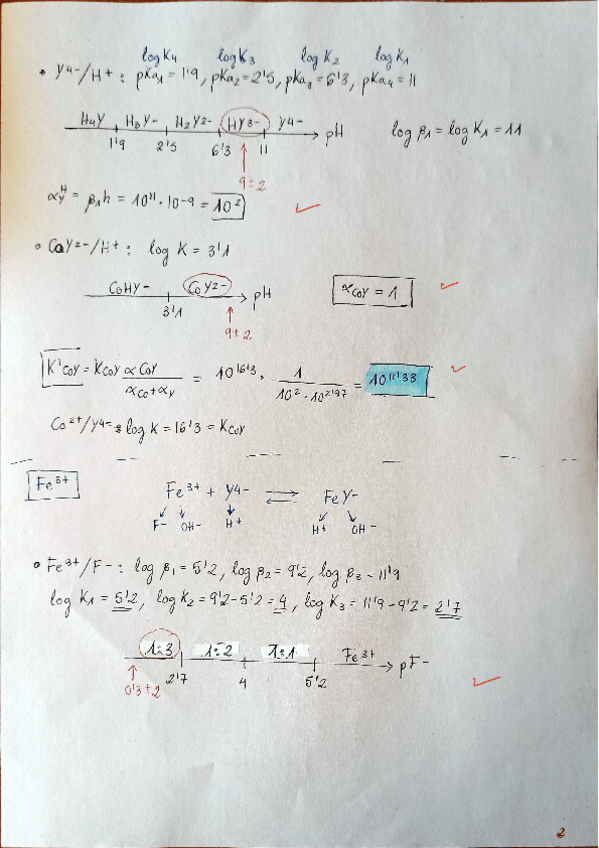 log K4 log K3 log K2 log K1
• Y4-/H+ : pKa1 = 1'9, pKa2 = 2'5, pKa3 = 6'3, pKa4 = 11
H4Y H3Y- H2Y2- HY3- Y4- pH
1'9 2'5 6'3 11
9±2
log β1 = log K1 = 11
αY^H = β1h = 10^11 · 10-9 = 10^2
• CoY2-/H+ : log K = 3'1
CoHY- CoY2- pH
3'1
9±2
αCoY = 1
K'CoY = KCoY αCoY / αCo+αY = 10^16'3 · 1 / 10^2 · 10^2'97 = 10^11'33
Co2+/Y4- : log K = 16'3 = KCoY
Fe3+
Fe3+ + Y4- ⇌ FeY-
F- OH- H+ H+ OH-
• Fe3+/F- : log β1 = 5'2, log β2 = 9'2, log β3 = 11'9
log K1 = 5'2, log K2 = 9'2-5'2 = 4, log K3 = 11'9-9'2 = 2'7
1:3 1:2 1:1 Fe3+ pF-
2'7 4 5'2
0'3±2
2